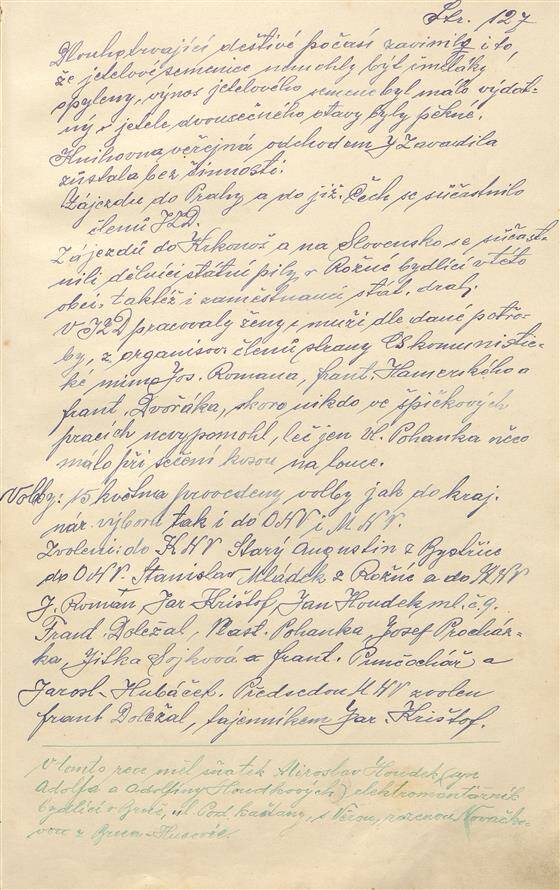 Str. 127
Dlouhotrvající deštivé počasí zavinily i to,
že jetelové semenice nemohly být čmeláky
opyleny, výnos jetelového semene byl málo vydat-
ný z jetele dvousečného, otavy byly pěkné.
Knihovna veřejná odchodem J Zavadila
zůstala bez činnosti.
Zájezdu do Prahy a do již. Čech se súčastnilo
členů JZD.
Zájezdů do Krkonoš a na Slovensko se súčast-
nili dělníci státní pily v Rožné bydlící v této
obci, taktéž i zaměstnanci stát. drah.
V JZD pracovaly ženy i muži dle dané potře-
by, z organisov. členů strany Čs komunistic-
ké mimo Jos. Romana, frant. Hamerského a
frant. Dvořáka, skoro nikdo ve špičkových
pracích nevypomohl, leč jen Vl. Pohanka něco
málo při sečení kosou na louce.
Volby: 15 května provedeny volby jak do kraj.
nár. výboru tak i do ONV i MNV.
Zvoleni: do KNV Starý Augustin z Bystřice
do ONV. Stanislav Mládek z Rožné a do MNV
J. Roman, Jar. Krištof, Jan Houdek ml. č. 9.
Frant. Doležal, Vlast. Pohanka Josef Procház-
ka, Jiřka Sojková a frant. Punčochář a
Jarosl. Hubáček. Předsedou MNV zvolen
frant Doležal, tajemníkem Jar. Krištof.
V tomto roce měl sňatek Miroslav Houdek (syn
Adolfa a Adolfiny Houdkových) elektromontárník
bydlící v Brně, ul. Pod kaštany, s Věrou, rozenou Nováčko-
vou z Brna-